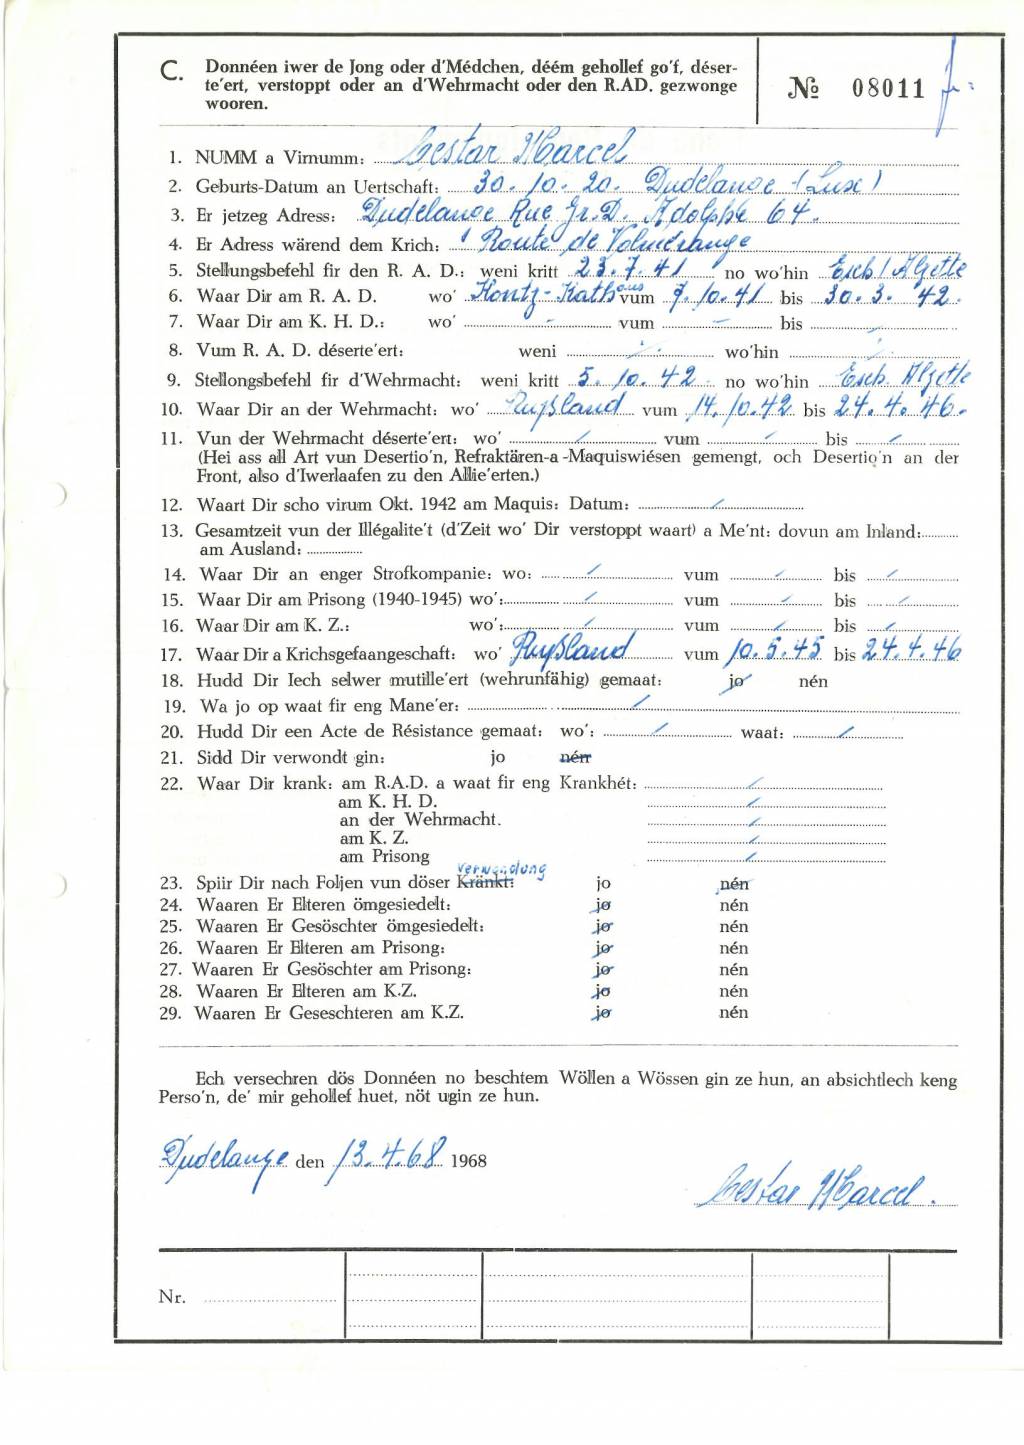 C. Donnéen iwer de Jong oder d'Médchen, déém gehollef go'f, déser-
te'ert, verstoppt oder an d'Wehrmacht oder den R.AD. gezwonge
wooren.
№ 08011
1. NUMM a Virnumm: Cestar Marcel
2. Geburts-Datum an Uertschaft: 30.10.20. Dudelange (Lux)
3. Er jetzeg Adress: Dudelange Rue Gr.D. Adolphe 64.
4. Er Adress wärend dem Krich: " Route de Volmérange
5. Stellungsbefehl fir den R. A. D.: weni kritt 23.7.41 no wo'hin Esch/Algette
6. Waar Dir am R. A. D. wo' Kontz-Kathaus vum 7.10.41 bis 30.3.42.
7. Waar Dir am K. H. D.: wo' - vum - bis
8. Vum R. A. D. déserte'ert: weni wo'hin
9. Stellongsbefehl fir d'Wehrmacht: weni kritt 5.10.42. no wo'hin Esch. Algette
10. Waar Dir an der Wehrmacht: wo' Rußland vum 14.10.42 bis 24.4.46.
11. Vun der Wehrmacht déserte'ert: wo' / vum / bis /
(Hei ass all Art vun Desertio'n, Refraktären-a-Maquiswiésen gemengt, och Desertio'n an der
Front, also d'Iwerlaafen zu den Allie'erten.)
12. Waart Dir scho virum Okt. 1942 am Maquis: Datum: /
13. Gesamtzeit vun der Illégalite't (d'Zeit wo' Dir verstoppt waart) a Me'nt: dovun am Inland:
am Ausland:
14. Waar Dir an enger Strofkompanie: wo: / vum / bis /
15. Waar Dir am Prisong (1940-1945) wo': / vum / bis /
16. Waar Dir am K. Z.: wo': / vum / bis /
17. Waar Dir a Krichsgefaangeschaft: wo' Rußland vum 10.5.45 bis 24.4.46
18. Hudd Dir Iech selwer mutille'ert (wehrunfähig) gemaat: jo nén
19. Wa jo op waat fir eng Mane'er: /
20. Hudd Dir een Acte de Résistance gemaat: wo': / waat: /
21. Sidd Dir verwondt gin: jo nén
22. Waar Dir krank: am R.A.D. a waat fir eng Krankhét: /
am K. H. D. /
an der Wehrmacht. /
am K. Z. /
am Prisong /
Verwondung
23. Spiir Dir nach Foljen vun döser Kränkt: jo nén
24. Waaren Er Elteren ömgesiedelt: jo nén
25. Waaren Er Gesöschter ömgesiedelt: jo nén
26. Waaren Er Elteren am Prisong: jo nén
27. Waaren Er Gesöschter am Prisong: jo nén
28. Waaren Er Elteren am K.Z. jo nén
29. Waaren Er Geseschteren am K.Z. jo nén
Ech versechren dös Donnéen no beschtem Wöllen a Wössen gin ze hun, an absichtlech keng
Perso'n, de' mir gehollef huet, nöt ugin ze hun.
Dudelange den 13.4.68 1968
Cestar Marcel.
Nr.